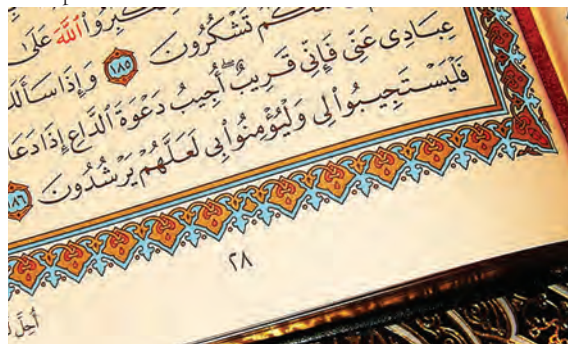 كَبِّرُوا۟ ٱللَّهَ عَلَىٰ
كُمْ تَشْكُرُونَ ١٨٥ وَإِذَا سَأَلَكَ
عِبَادِى عَنِّى فَإِنِّى قَرِيبٌ ۖ أُجِيبُ دَعْوَةَ ٱلدَّاعِ إِذَا دَعَا
فَلْيَسْتَجِيبُوا۟ لِى وَلْيُؤْمِنُوا۟ بِى لَعَلَّهُمْ يَرْشُدُونَ ١٨٦
٢٨
أُحِلَّ